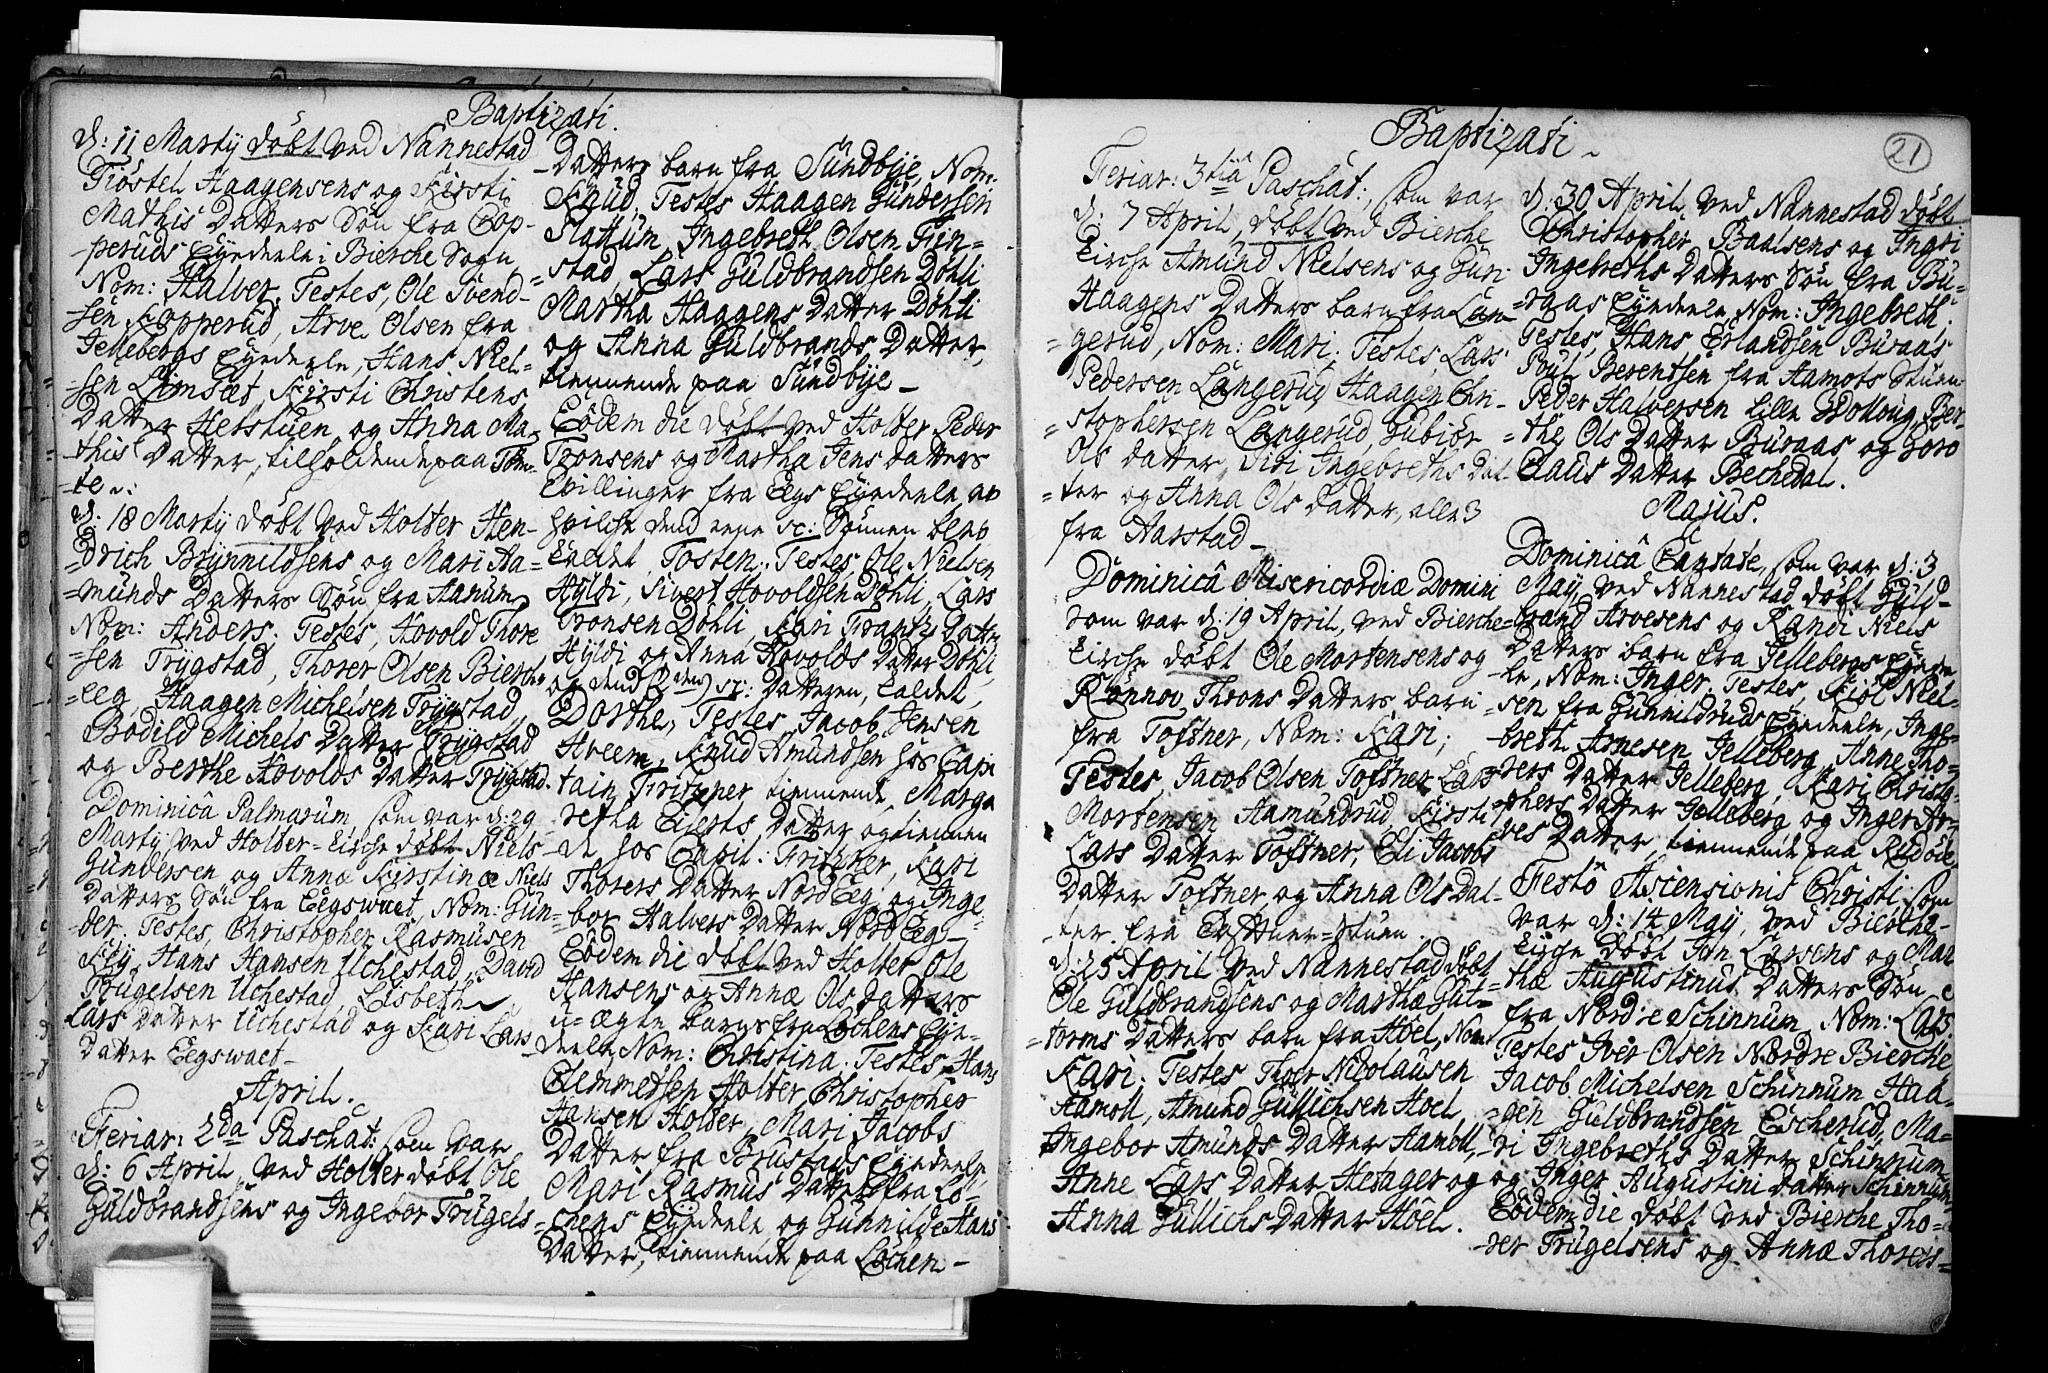 Baptizati.
d: 11 Martÿ døbt ved Nannestad
Kiøstel Haagensens og Kirsti
Mathis Datters Søn fra Cop-
peruds Eyedeele i Bierche Sogn
Nom: Halver. Testes, Ole Svend-
sen Kopperud, Arve Olsen fra
Jellebergs Eyedeele, Hans Niel-
sen Limsæt, Kirsti Christens
Datter Hetstuen, og Anna Ma-
this Datter, tilholdende paa Tom-
te ~:
d: 18 Martÿ døbt ved Holter Hen-
drich Brynnildsens og Mari Aa-
munds Datters Søn fra Aanum
Nom: Anders. Testes, Hovold Thore
sen Trygstad, Thorer Olsen Bierche
eeg, Haagen Michelsen Trygstad,
Bodild Michels Datter Trygstad
og Berthe Hovolds Datter Trygstad.
Dominicâ Palmarum, som var d: 29
Martÿ ved Holter-Kirche døbt Niels
Gundersen og Annæ Kirstinæ Niels
Datters Søn fra Eegswaet, Nom: Gun-
der. Testes, Christopher Rasmusen
Key, Hans Hansen Uchestad, David
Trugelsen Uchestad, Lisbeth
Lars Datter Uchestad og Kari Lars
Datter Eegswaet-
April.
Feriar: 2da Paschat: som var
d: 6 April, ved Holter døbt Ole
Guldbrandsens og Ingebor Trugels
-Datters barn fra Sundbye, Nom:
Knud. Testes Haagen Gundersen
Slattum, Ingebreth Olsen Fin-
stad, Lars Guldbrandsen Døhli
Martha Haagens Datter Døhli
og Anna Guldbrands Datter,
tiennende paa Sundbye-
Eôdem die døbt ved Holter Peder
Tronsens og Martha Jens Datters
Tvillinger fra Eegs Eyedeele, av
hvilche dend eene sc: Sønnen blev
kaldet Tosten. Testes, Ole Nielsen
Hyldi, Sivert Hovoldsen Døhli, Lars
Tronsen Døhli, Kari Frantz Datter
Hyldi og Anna Hovolds Datter Døhli,
og dend 2den sc: Datteren, kaldet
Dorthe, Testes Jacob Jensen
Hveem, Knud Amundsen hos Capi
tain Fritzner tiennende, Marga
retha Eilerts Datter og tiennen
de hos Capit: Fritzner, Kari
Thorers Datter Nord Eeg og Inge-
bor Halvers Datter Nord Eeg-
Eôdem die døbt ved Holter Ole
Hansens og Annæ Ols Datters
u-ægte barn fra Lochens Eye-
deele, Nom: Christina. Testes, Hans
Clemmetsen Holter, Christopher
Hansen Holter, Mari Jacobs
Datter fra Brustads Eyedeele,
Mari Rasmus Datter fra Lo-
chens Eyedeele og Gunnilde Hans
Datter, tiennende paa Lochen-
Baptizati-
21
Feriar: 3tiâ Paschat:, som var
d: 7 April, døbt ved Bierche
Kirche Amund Nielsens og Guri
Haagens Datters barn fra Lan-
gerud, Nom: Mari. Testes, Lars
Pedersen Langerud, Haagen Chri-
stophersen Langerud, Gubiør
Ols Datter, Siri Ingebreths Dat-
ter og Anna Ols Datter, alle 3
fra Harstad-
Dominicâ Misericordiæ Domini
som var d: 19 April, ved Bierche
Kirche døbt Ole Mortensens og
Rønnov Throns Datters barn
fra Toftner, Nom: Kari;
Testes, Jacob Olsen Toftner, Lars
Mortensen Aamundrud, Kirsti
Lars Datter Toftner, Eli Jacobs
Datter Toftner, og Anna Ols Dat-
ter fra Toftner-stuen.
d: 25 April ved Nannestad døbt
Ole Guldbrandsens og Marthæ Gut-
torms Datters barn fra Hôel, Nom:
Kari. Testes Thor Nicolausen
Aamoll, Amund Gullichsen Hoel
Ingebor Amunds Datter Aamoll,
Anne Lars Datter Hetager og
Anna Gullichs Datter Hôel.
d: 30 April, ved Nannestad døbt
Christopher Baalsens og Ingri
Ingebreths Datters Søn fra Bu-
raas Eyedeele, Nom: Ingebreth.
Testes, Hans Erlandsen Buraas
Poul Berentsen fra Aamots Stuen
Peder Halversen Lille Wolloug, Ber-
the Ols Datter Buraas og Goro
Claus Datter Bechedal.
Majus.
Dominicâ Cantate, som var d: 3
May, ved Nannestad døbt Guld-
brand Arvesens og Randi Niels
Datters barn fra Jellebergs Eyede-
le, Nom: Inger. Testes, Kiøl Niel-
sen fra Gunnildruds Eyedeele, Inge-
breth Arnesen Jelleberg, Anne Tho-
rers Datter Jelleberg, Kari Christo-
phers Datter Jelleberg og Inger Ar-
ves Datter, tiennende paa Rudøde
Festô Ascensionis Christi som
var d: 14 May, ved Bierche-
Kirche døbt Jon Larsens og Mar
thæ Augustinus Datters Søn
fra Nordre Schinnum, Nom: Lars.
Testes Iver Olsen Nordre Bierche
Jacob Michelsen Schinnum Haa-
gen Guldbrandsen Escherud, Ma-
ri Ingebreths Datter Schinnum
og Inger Augustini Datter Schinnum
Eôdem die døbt ved Bierche Tho-
rer Trugelsens og Annæ Thorers